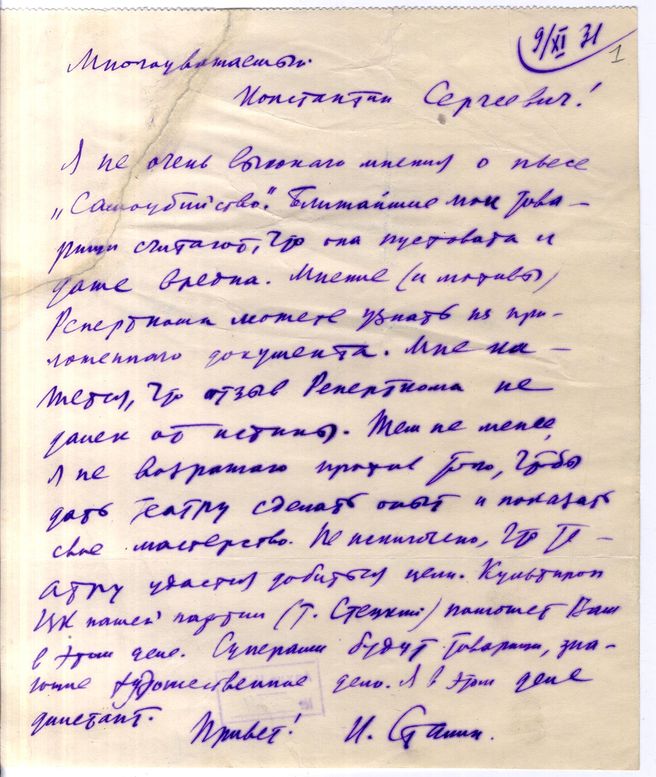 9/XI 31
1
Многоуважаемый
Константин Сергеевич!
Я не очень высокого мнения о пьесе
„Самоубийство“. Ближайшие мои това-
рищи считают, что она пустовата и
даже вредна. Мнение (и мотивы)
Реперткома можете узнать из при-
ложенного документа. Мне ка-
жется, что отзыв Реперткома не
далек от истины. Тем не менее
я не возражаю против того, чтобы
дать театру сделать опыт и показать
свое мастерство. Не исключено, что те-
атру удастся добиться цели. Культпроп
ЦК нашей партии (т. Стецкий) поможет Вам
в этом деле. Суперами будут товарищи, зна-
ющие художественное дело. Я в этом деле
дилетант.
Привет! И. Сталин.